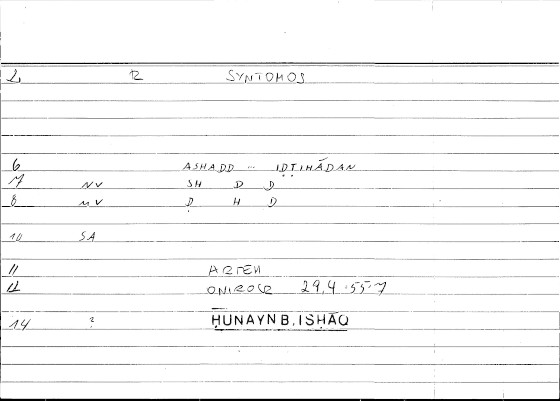 1. 12 SYNTOMOS
6 ASHADD ... IḌṬIHĀDAN
7 NV SH D D
8 MV Ḍ H D
10 SA
11 ARTEM
12 ONIROCR 29,4 · 55,7
14 ? ḤUNAYN B. ISḤĀQ